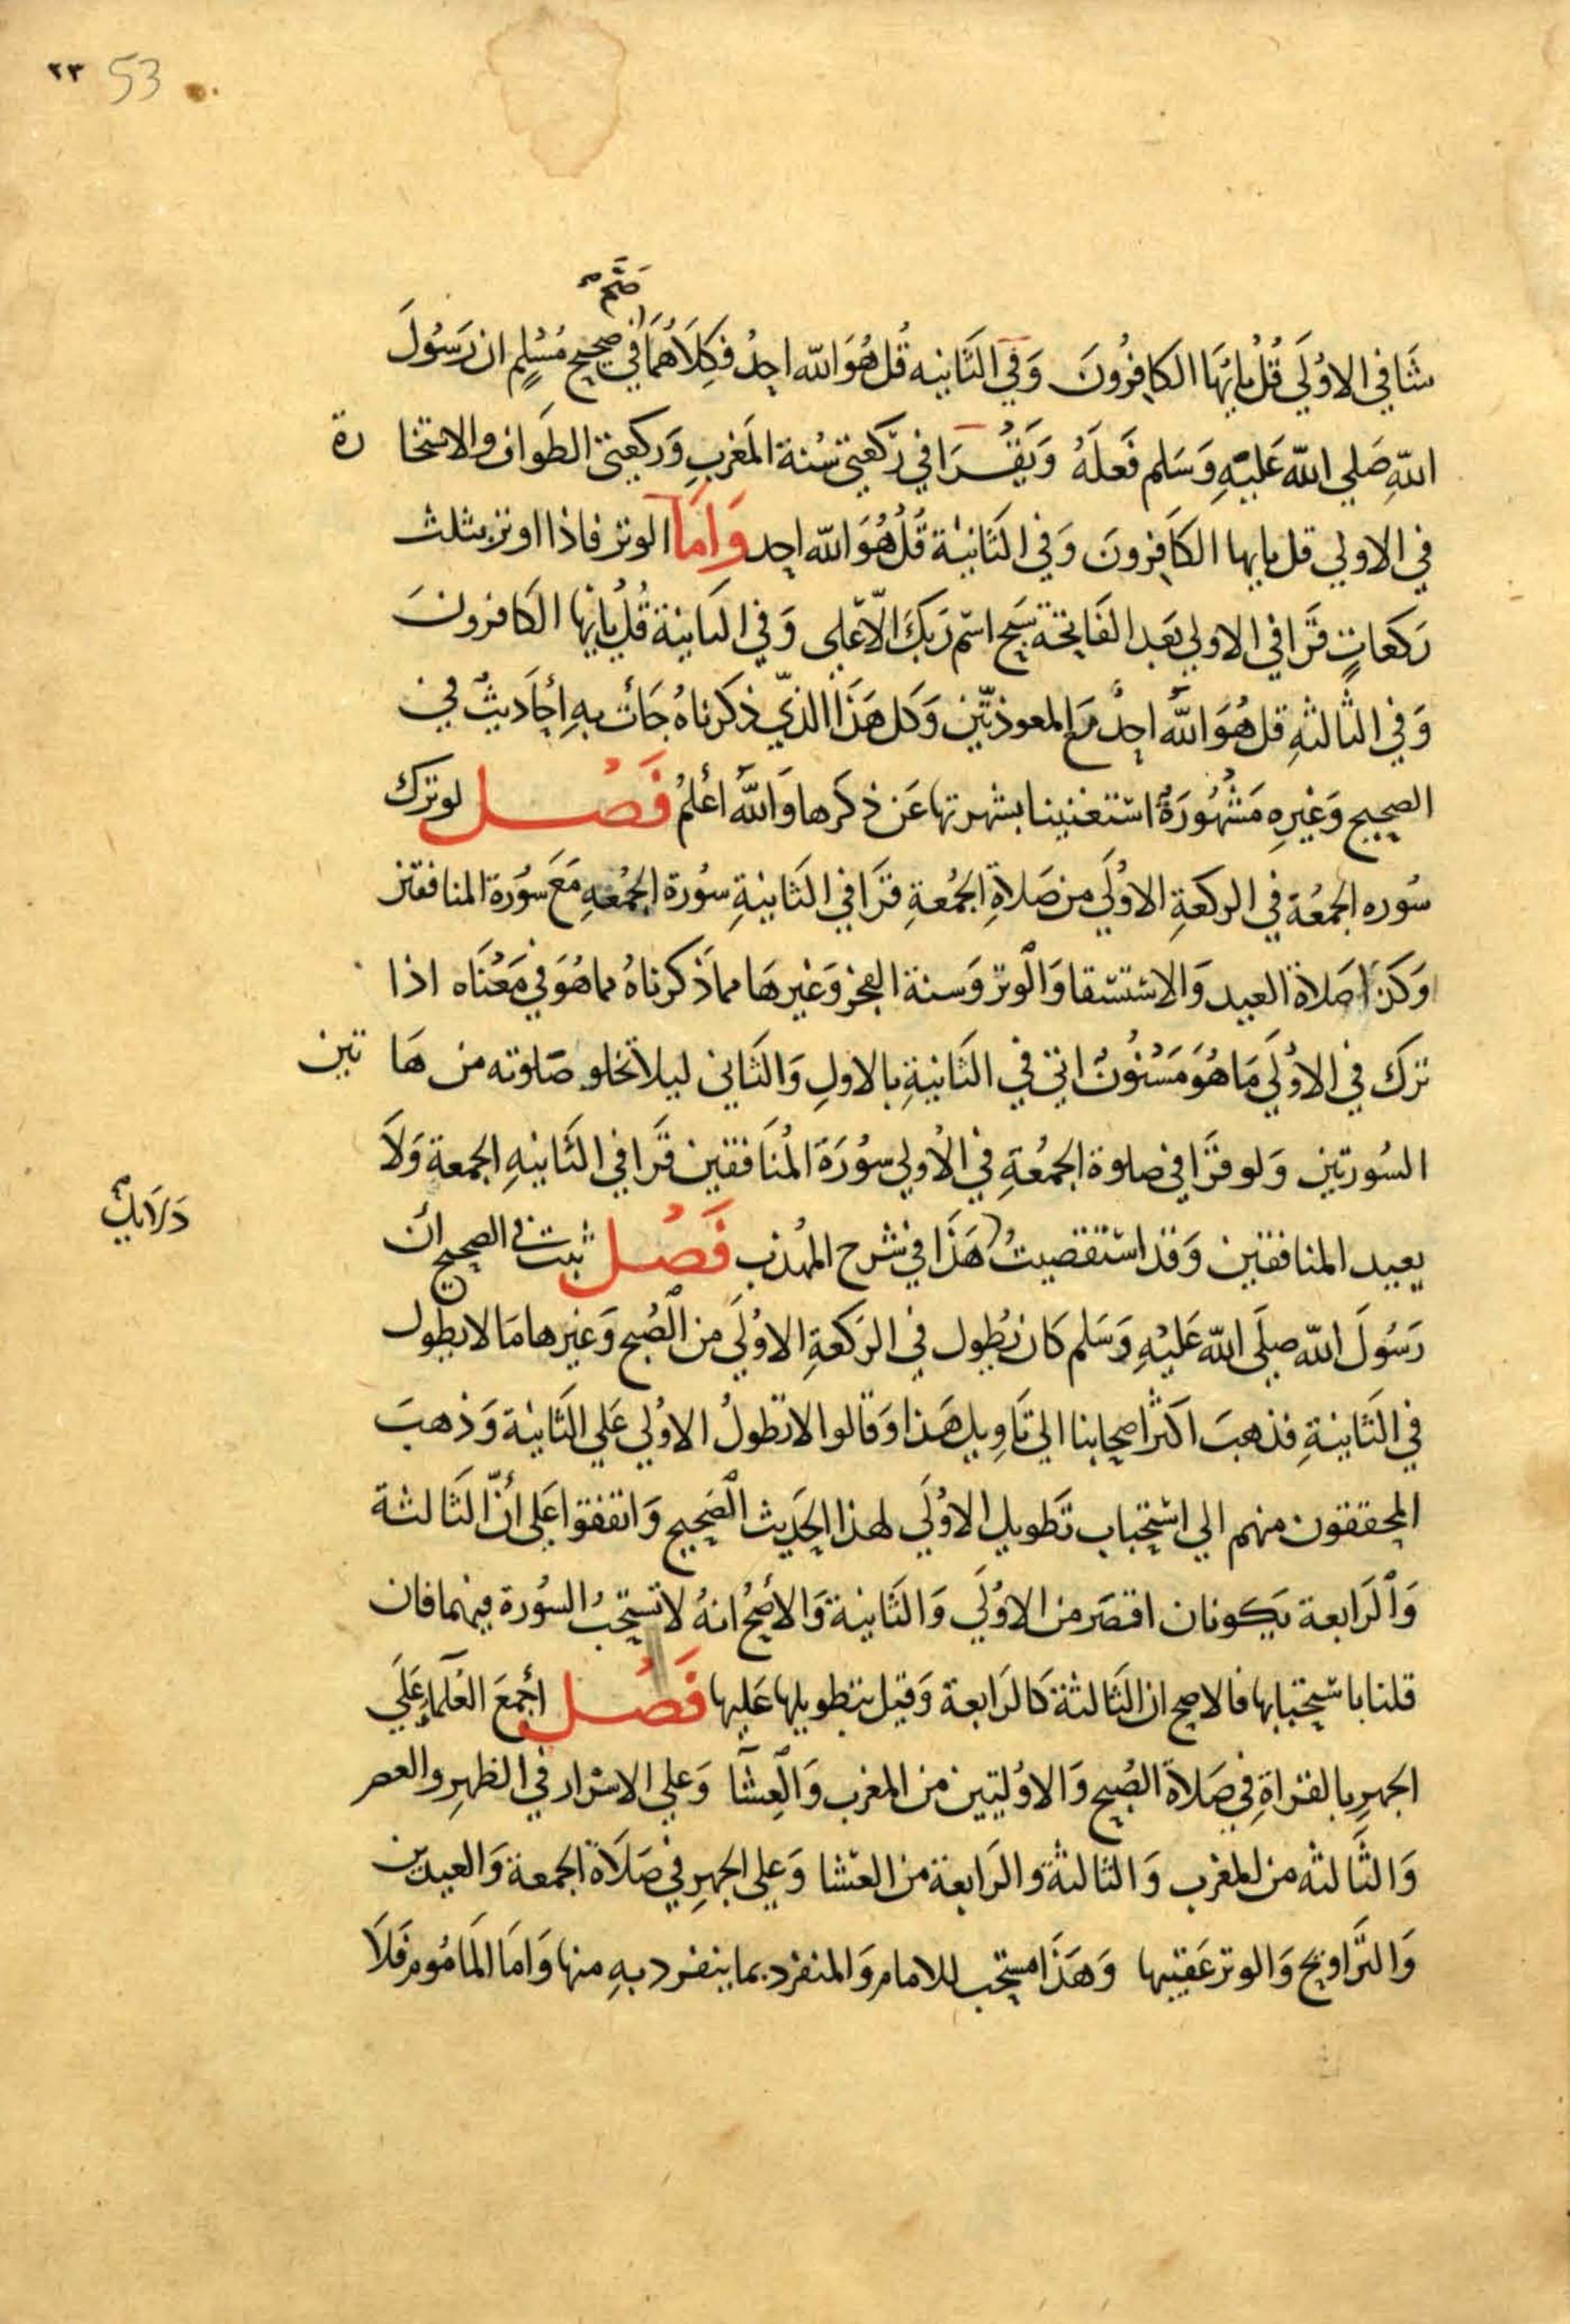 ٢٣ 53
صح
شا في الاوُلَي قُلْ يايهَا الكافِرُونَ وَفي الثَانيه قُل هُوَ الله احدٌ فكِلَاهُمَا في صحيح مُسْلِم ان رَسُولَ
اللهِ صَلي الله عَليْهِ وَسَلم فَعلَهُ وَيَقْرَا في رَكعتي سُنة المَغربِ وَركعتي الطَواف والاستخارة
في الاولي قل يايها الكَافِرونَ وَفي الثَانيْة قُلْ هُوَ الله احد وَامَا الوتر فاذا اوتر بثلث
رَكعَاتٍ قَرا في الاولي بَعد الفَاتحَة سَبح اسْم رَبكَ الاعْلى وَفي الثانية قُل يايها الكَافرونَ
وَفي الثالثهِ قل هُوَ اللهُ احدٌ مَع المعوذتين وَكل هَذَا الذي ذكرناهُ جَأت بهِ احَاديثٌ في
الصحيح وَغيرِهِ مَشْهُورَةٌ استغنينا بشهرتها عَن ذكرها وَاللهُ أعْلمُ فَصْل لو ترك
سُوره الجمعُة في الركعَةِ الاوُلَي من صَلاةِ الجُمعةِ قرَا في الثَانيةِ سُورة الجُمُعهِ مَعَ سوُرة المنافقين
وَكذا صَلاة العيد وَالاسْتسْقا وَالوتر وَسنة الفجر وَغيرهَا مما ذكرناهُ مما هُوَ في مَعْنَاه اذا
ترك في الاوُلَي مَا هُوَ مَسْنُونٌ اتي في الثَانيةِ بالاولِ وَالثَاني ليلا تخلو صَلوته من هَاتين
السُورتين وَلو قرَا في صلوة الجمُعةِ في الاُولي سوُرَة المُنَافقين قَرا في الثَانيهِ الجمعة وَلَا
يعيد المنافقين وَقد استقصيتُ هَذَا في شرح المهذب فَصْل ثبت في الصحيح ان
دَلَايل
رَسُولَ الله صلَى الله عَليْهِ وَسَلم كَان يُطول في الرَكعَةِ الاوُلَي من الصُبح وَغيرها مَا لا يطول
في الثَانيةِ فذهبَ اكثر اصحابنا الي تَاوِيل هَذا وَقالوا لا تطولُ الاوُلي عَلي الثَانيْة وَذهبَ
المحققون منهم الي استحباب تَطويل الاوُلَي لهذا الحَديث الصَحيح وَاتفقوا عَلي أنّ الثَالثة
وَالرَابعة يَكونان اقصَر من الاوُلَي وَالثَانية وَالأصحُ انهُ لا تستحبُ السُورة فيهما فان
قلنا باسْتحبابها فالاصح ان الثَالثة كَالرَابعة وَقيل بتطويلها عَليها فَصْل أجْمعَ العُلَماء عَلَي
الجهرِ بالقرَاةِ في صَلاة الصُبح وَالاوُليتين من المغرب وَالعِشَا وَعلي الاسْرار في الظهرِ والعصر
وَالثَالثه من المغرب وَالثالثة والرَابعة من العشا وَعلي الجهرِ في صَلَاة الجمعة وَالعيدين
وَالترَاويح وَالوتر عَقيبها وَهَذَا مستحب للامام وَالمنفرد بما ينفرد بهِ منها وَامَا المَامُوم فَلَا